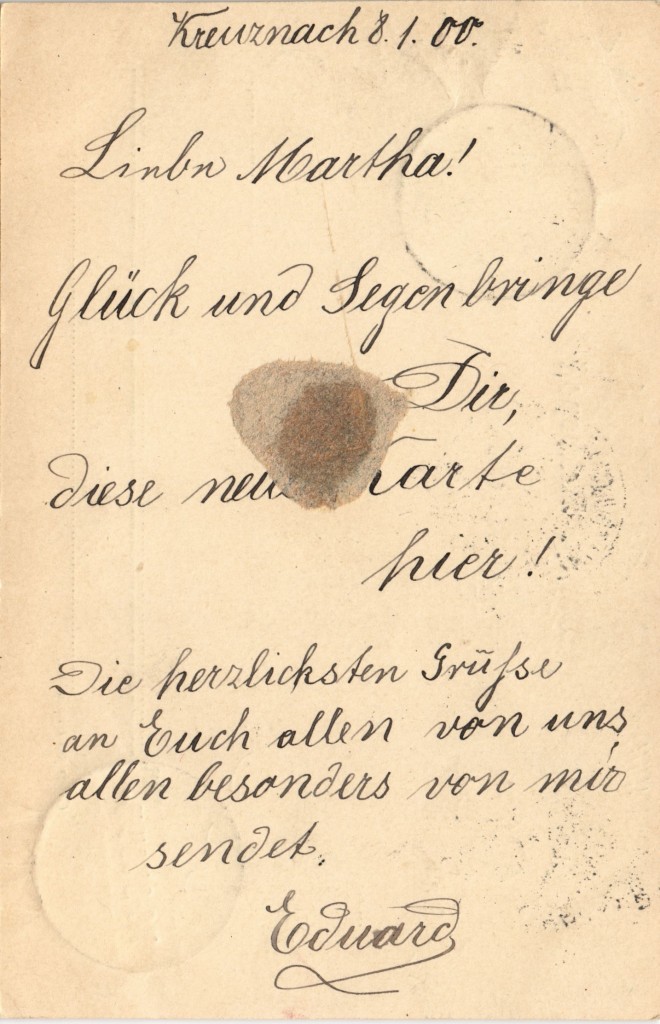 Kreuznach 8. 1. 00.
Liebe Martha!
Glück und Segen bringe
Dir,
diese neue Karte
hier!
Die herzlichsten Grüsse
an Euch allen von uns,
allen besonders von mir
sendet.
Eduard